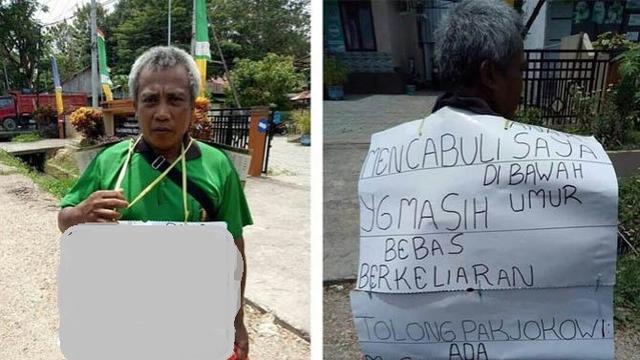 ANAK
MENCABULI SAYA
DI BAWAH
YG MASIH UMUR
BEBAS
BERKELIARAN
TOLONG PAK JOKOWI:
ADA